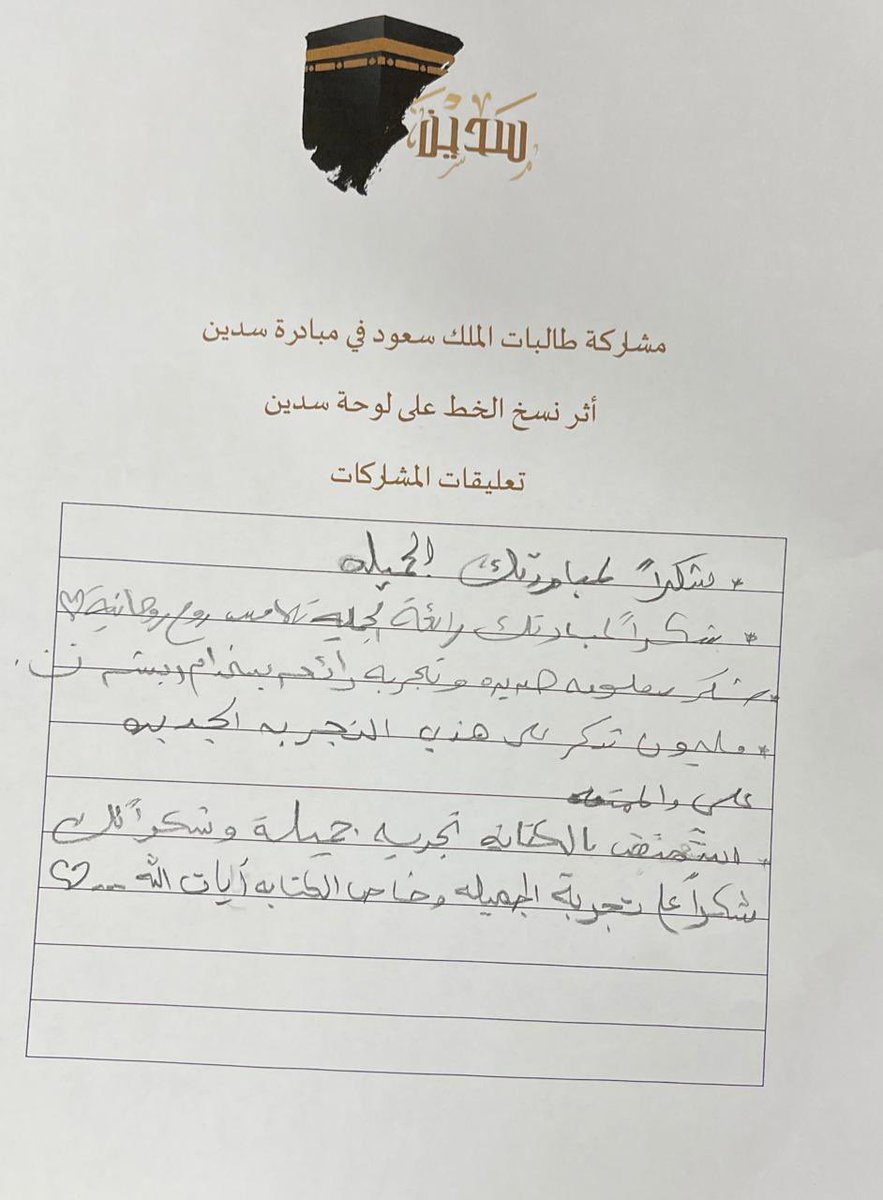 سدين
مشاركة طالبات الملك سعود في مبادرة سدين
أثر نسخ الخط على لوحة سدين
تعليقات المشاركات
* شكراً لمبادرتك الجميله
* شكراً لمبادرتك رائعة تلامس روح روحانية ♡
* شكر معلومه جديده وتجربه
* مليون شكر على هذه التجربه الجديده
والممتعه
* بالكتابه تجربه جميلة وشكراً لك
شكراً على تجربة الجميله وخاص الكتابه أيات الله ... ♡